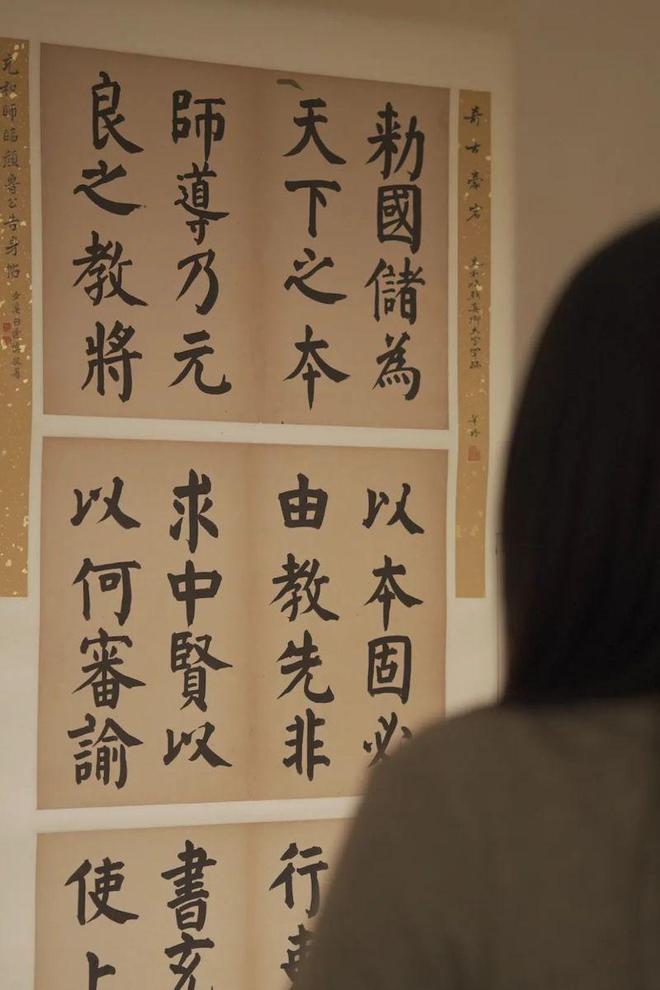 奇古豪宕
勑國儲為
天下之本
師導乃元
良之教將
以本固必
由教先非
求中賢以
以何審諭
行
書充
使上
充和師臨顏魯公告身帖